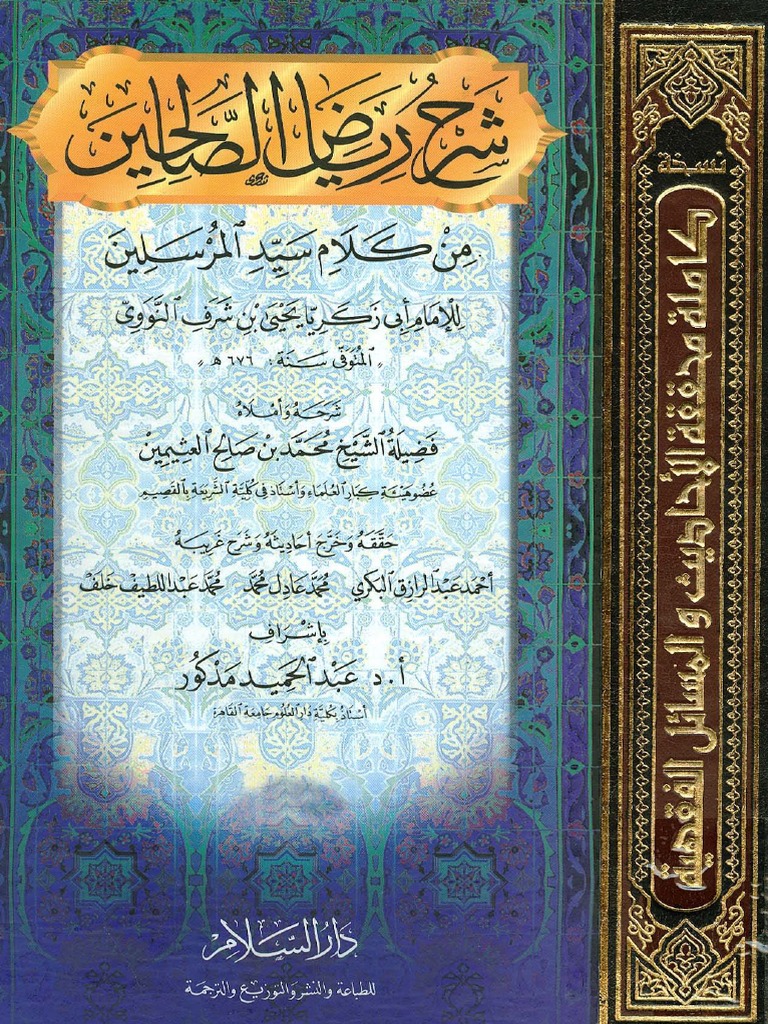 شرح رياض الصالحين
مِنْ كَلَامِ سَيِّدِ المُرْسَلِينَ
لِلْإِمَامِ أَبِي زَكَرِيَّا يَحْيَى بْنِ شَرَفِ النَّوَوِيّ
« المُتَوَفَّى سَنَة : ٦٧٦ هـ »
شَرَحَهُ وَأَمْلَاهُ
فَضِيلَةُ الشَّيْخِ مُحَمَّدِ بْنِ صَالِحِ العُثَيْمِينِ
عضو هيئة كبار العلماء وأستاذ في كلية الشريعة بالقصيم
حَقَّقَهُ وَخَرَّجَ أَحَادِيثَهُ وَشَرَحَ غَرِيبَهُ
أحمد عبد الرازق البكري محمد عادل محمد محمد عبد اللطيف خلف
بِإِشْرَافِ
أ.د عَبْدِ الحَمِيدِ مَدْكُور
أستاذ بكلية دار العلوم جامعة القاهرة
دار السلام
للطباعة والنشر والتوزيع والترجمة
نسخة
كاملة محققة الأحاديث والمسائل الفقهية